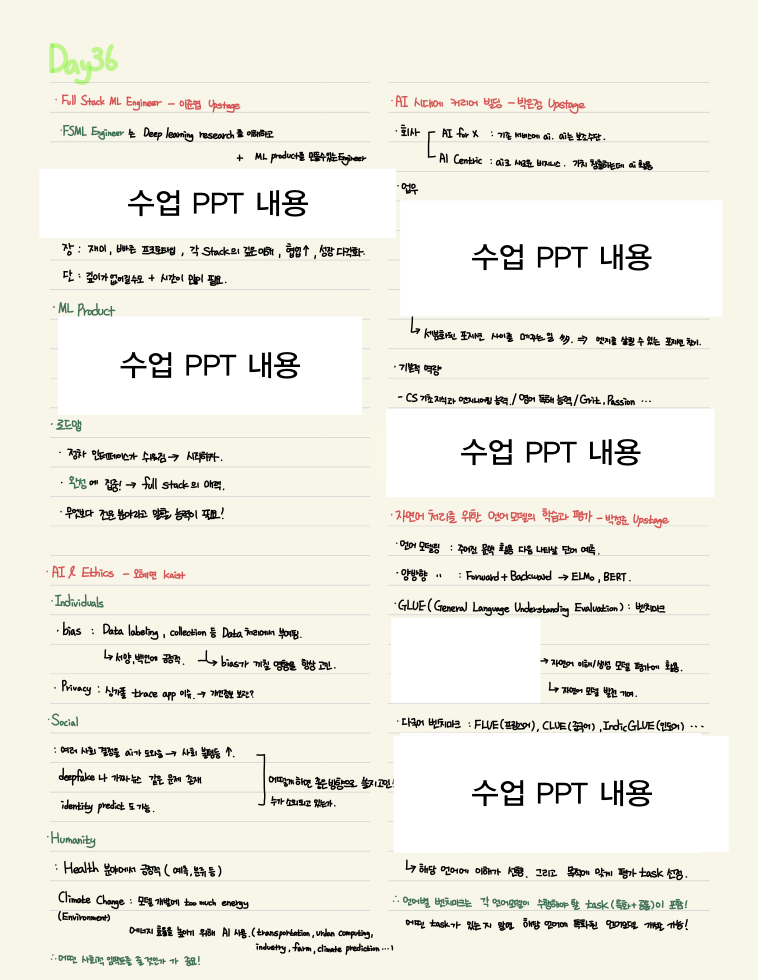 Day36
· Full Stack ML Engineer - 이준엽 Upstage
· FSML Engineer 는 Deep learning research 를 이해하고
+ ML product를 만들수있는 Engineer
수업 PPT 내용
장 : 재미, 빠른 프로토타입, 각 Stack의 깊은 이해, 협업↑, 성장 다각화.
단 : 깊이가 없어질수도 + 시간이 많이 필요.
· ML Product
수업 PPT 내용
· 로드맵
· 점차 인터페이스가 쉬워짐 → 시작하자.
· 완성에 집중! → full stack의 매력.
· 무엇보다 갖은 분야라고 말할 능력이 필요!
· AI & Ethics - 오혜연 kaist
· Individuals
· bias : Data labeling, collection 등 Data 처리에서 부여됨.
↳ 서양, 백인에 긍정적. ↳ bias가 끼칠 영향을 항상 고민.
· Privacy : 싱가폴 trace app 이슈. → 개인정보 보관?
· Social
: 여러 사회 결정을 ai가 도와줌 → 사회 불평등 ↑.
deepfake 나 가짜뉴스 같은 문제 존재
identity predict 도 가능.
어떻게 하면 좋은 방향으로 쓸지 고민!
누가 소외되고 있는가.
· Humanity
: Health 분야에서 긍정적 ( 예측, 분류 등 )
Climate Change : 모델 개발에 too much energy
(Environment)
에너지 효율을 높이기 위해 AI 사용. ( transportation, urban computing,
industry, farm, climate prediction ... )
∴ 어떤 사회적 임팩트를 줄 것인가 가 중요!
· AI 시대에 커리어 빌딩 - 박은정 Upstage
· 회사 AI for X : 기존 서비스에 ai. ai는 보조수단.
AI Centric : ai로 새로운 비지니스. 가치 창출하는데 ai 활용
· 업무
수업 PPT 내용
↳ 세분화된 포지션 사이를 메꾸는 일 多. ⇒ 엣지를 살릴 수 있는 포지션 찾기.
· 기본적 역량
- CS 기초지식과 엔지니어링 능력. / 영어 독해 능력 / Grit, Passion ...
수업 PPT 내용
· 자연어 처리를 위한 언어 모델의 학습과 평가 - 박성준 Upstage
· 언어 모델링 : 주어진 문맥 활용 다음 나타날 단어 예측.
· 양방향 〃 : Forward + Backward → ELMo, BERT.
· GLUE ( General Language Understanding Evaluation ) : 벤치마크
→ 자연어 이해/생성 모델 평가에 활용.
↳ 자연어 모델 발전 기여.
· 다국어 벤치마크 : FLUE (프랑스어), CLUE (중국어), IndicGLUE (인도어) ...
수업 PPT 내용
↳ 해당 언어에 이해가 선행. 그리고 목적에 맞게 평가 task 선정.
∴ 언어별 벤치마크는 각 언어모델이 수행해야 할 task (특화+공통)이 포함!
어떤 task가 있는지 알면 해당 언어에 특화된 언어모델 개발 가능!